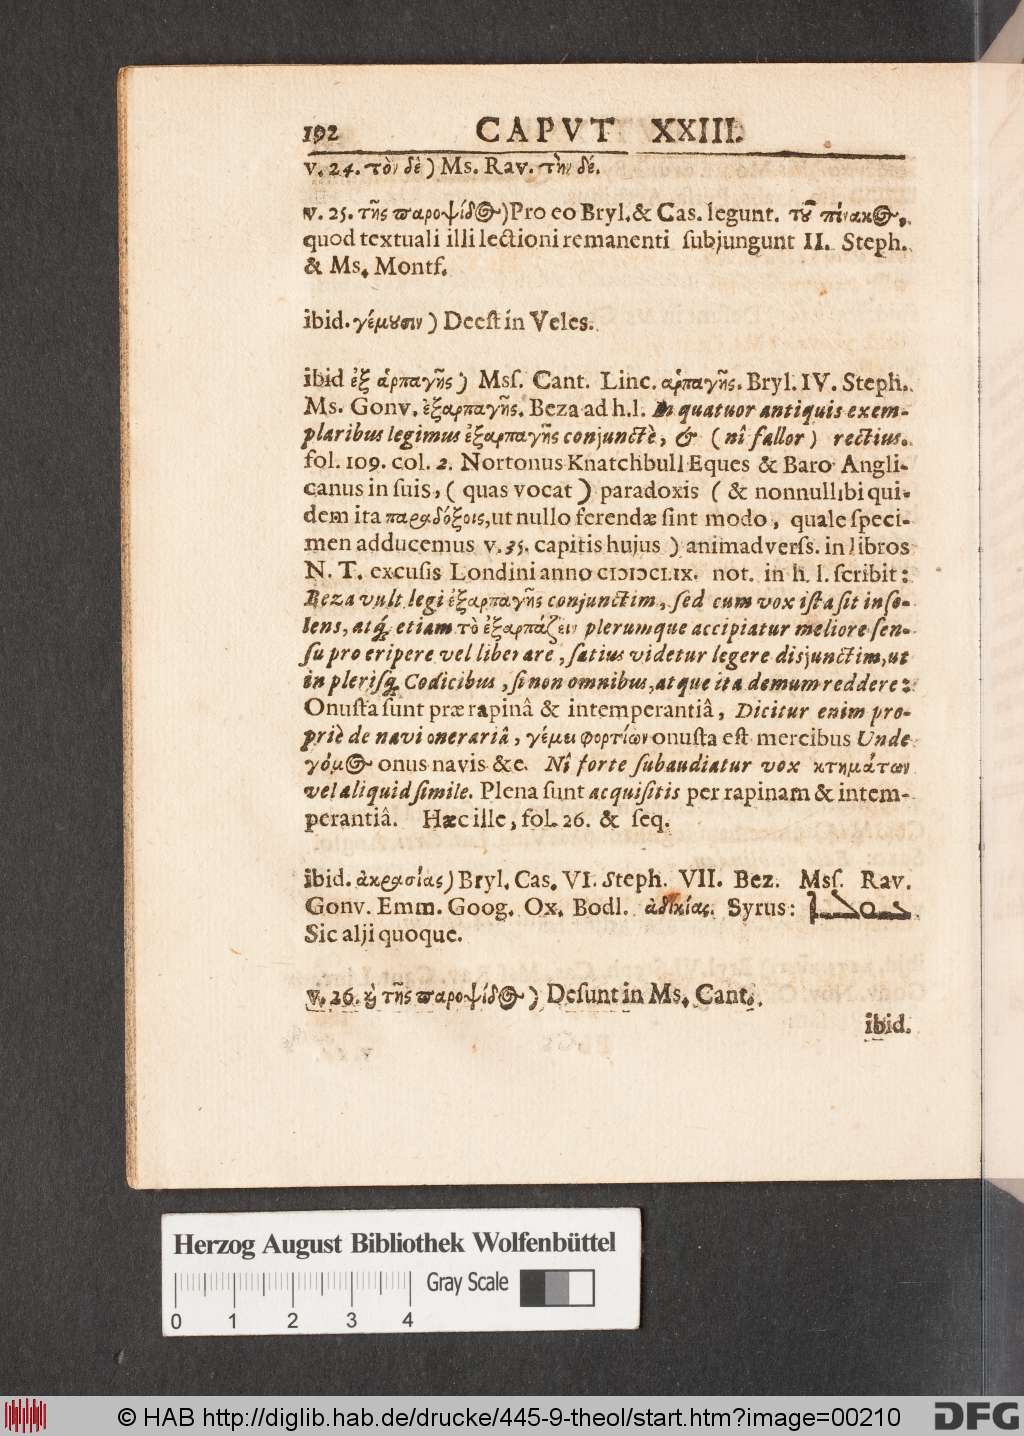 192 CAPVT XXIII.
v. 24. τὸν δὲ) Ms. Rav. τὴν δέ.
v. 25. τῆς παροψίδ⊙) Pro eo Bryl. & Cas. legunt. τȣ͂ πίνακ⊙,
quod textuali illi lectioni remanenti ſubjungunt II. Steph.
& Ms. Montf.
ibid. γέμȣσιν) Deeſt in Veles.
ibid ἐξ ἁρπαγῆς) Mſſ. Cant. Linc. ἁρπαγῆς. Bryl. IV. Steph.
Ms. Gonv. ἐξαρπαγῆς. Beza ad h.l. In quatuor antiquis exem-
plaribus legimus ἐξαρπαγῆς conjunctè, & (nî fallor) rectius.
fol. 109. col. 2. Nortonus Knatchbull Eques & Baro Angli-
canus in ſuis, (quas vocat) paradoxis (& nonnullibi qui-
dem ita παραδόξοις, ut nullo ferendæ ſint modo, quale ſpeci-
men adducemus v. 35. capitis hujus) animadverſs. in libros
N. T. excuſis Londini anno CIƆIƆCLIX. not. in h. l. ſcribit:
Beza vult legi ἐξαρπαγῆς conjunctim, ſed cum vox iſta ſit inſo-
lens, atq́; etiam τὸ ἐξαρπάζειν plerumque accipiatur meliore ſen-
ſu pro eripere vel liberare, ſatius videtur legere disjunctim, ut
in pleriſq́; Codicibus, ſi non omnibus, atque ita demum reddere:
Onuſta ſunt præ rapinâ & intemperantiâ, Dicitur enim pro-
priè de navi onerariâ, γέμει φορτίων onuſta eſt mercibus Unde
γόμ⊙ onus navis &c. Nî forte ſubaudiatur vox κτημάτων
vel aliquid ſimile. Plena ſunt acquiſitis per rapinam & intem-
perantiâ. Hæc ille, fol. 26. & ſeq.
ibid. ἀκρασίας) Bryl. Cas. VI. Steph. VII. Bez. Mſſ. Rav.
Gonv. Emm. Goog. Ox. Bodl. ἀδικίας. Syrus: ܥܘܠܐ
Sic alji quoque.
v. 26. ϗ̀ τῆς παροψίδ⊙) Deſunt in Ms. Cant.
ibid.
Herzog August Bibliothek Wolfenbüttel
Gray Scale
0 1 2 3 4
© HAB http://diglib.hab.de/drucke/445-9-theol/start.htm?image=00210
DFG